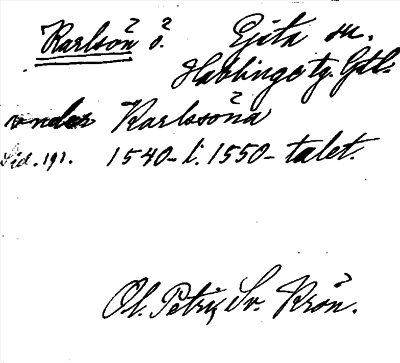 Karlsön ö. Ejsta sn.
Hablingo tg. Gtl.
under Karlssöna
Sid. 191. 1540- l. 1550- talet.
Ol. Petri, Sv. Krön.